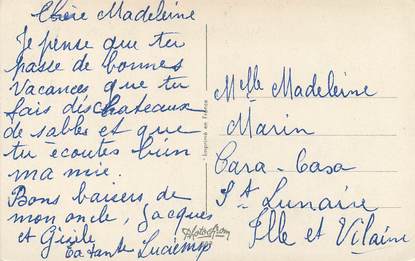 Chère Madeleine
Je pense que tu
passe de bonnes
Vacances que tu
fais des chateaux
de sables et que
tu écoutes bien
ma mie.
Bons baisers de
mon oncle, Jacques
et Gisèle
ta tante
Imprimé en France
Photochrom
Melle Madeleine
Marin
Cara-Casa
St Lunaire
Ille et Vilaine